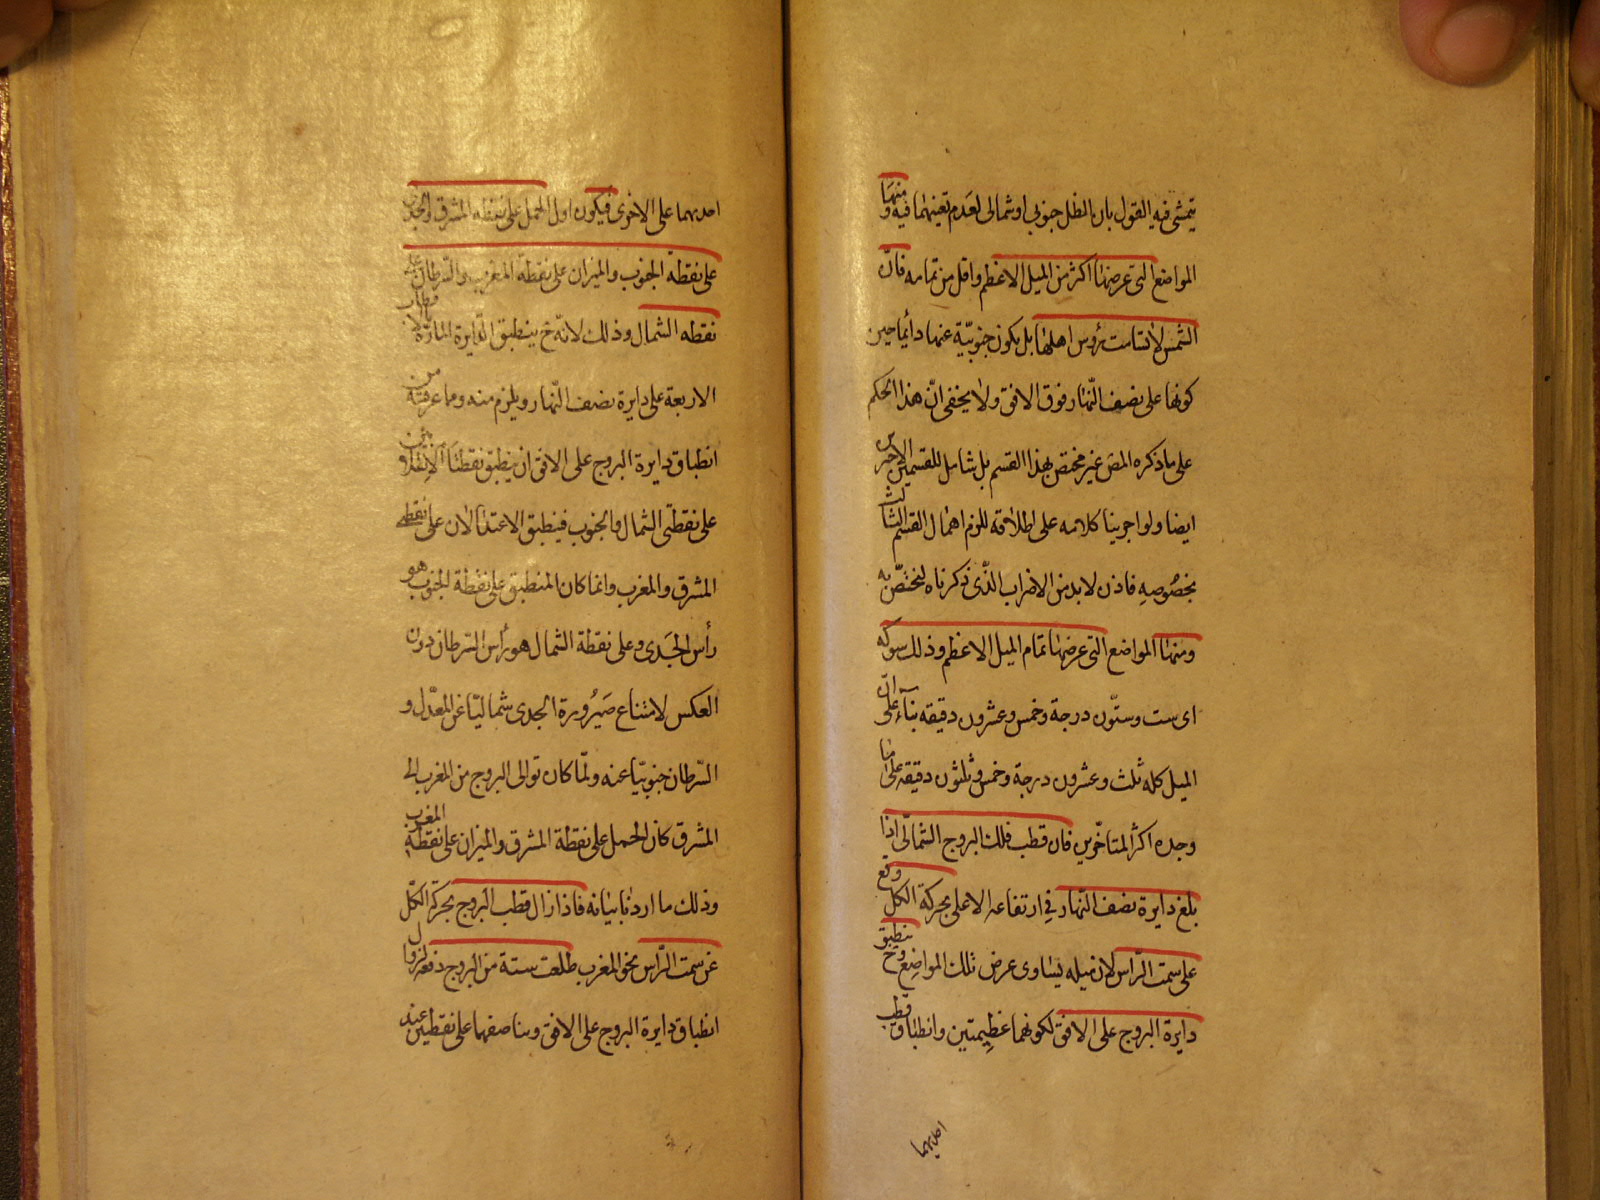 يتمشى فيه القول بان الظل جنوبى او شمالى لعدم تعينهما فيه ومنها
المواضع التى عرضها اكثر من الميل الاعظم واقل من تمامه فانّ
الشمس لا تسامت رؤس اهلها بل يكون جنوبيّة عنها دائما حين
كونها على نصف النّهار فوق الافق ولا يخفى انّ هذا الحكم
على ما ذكره المص غير مختص بهذا القسم بل شامل للقسمين الاخيرين
ايضا ولو اجرينا كلامه على اطلاقه للزم اهمال القسم الثالث
بخصُوصِهِ فاذن لا بد من الاضراب الذّى ذكرناه لتختصّ به
ومنها المواضع التى عرضها تمام الميل الاعظم وذلك سوكه
اى ست وستّون درجة وخمس وعشرون دقيقه بنآء على انّ
الميل كله ثلث وعشرون درجة وخمس وثلثون دقيقه على ما
وجده اكثر المتاخّرين فان قطب فلك البروج الشمالّى اذا
بلغ دايرة نصف النّهار فى ارتفاعه الاعلى بحركة الكل وقع
على سمت الرّاس لان ميله يساوى عرض تلك المواضِع وح ينطبق
دايرة البروج على الافق لكونهما عَظِيمتين وانطباق قطب
احديهما
احديهما على الاخرى فيكون اول الحمل على نقطه المشرق والجدى
على نقطة الجنوب والميزان على نقطة المغرب والسّرطان على
نقطه الشمال وذلك لانّه ح ينطبق الدّايرة المارّة بالاقطاب
الاربعة على دايرة نصف النّهار ويلزم منه وما عرفته من
انطباق دايرة البروج على الافق ان ينطبق نقطتا الانقلابين
على نقطتى الشمال والجنوب فينطبق الاعتدالان على نقطتى
المشرق والمغرب وانما كان المنطبق على نقطة الجنوب هو
رأس الجَدى وعلى نقطة الشمال هو رأس السّرطان دون
العكس لامتناع صَيْرُورة الجدى شماليّا عن المعّدل و
السّرطان جنوبيّا عنه ولمّا كان توالى البروج من المغرب الى
المشرق كان الحمل على نقطة المشرق والميزان على نقطة المغرب
وذلك ما اردنا بيانه فاذا زال قطب البروج بحركة الكلّ
عن سمت الرّاس نحو المغرب طلعت ستة من البروج دفعه لزوال
انطباق دايرة البروج على الافق وتناصفهما على نقطتين عند